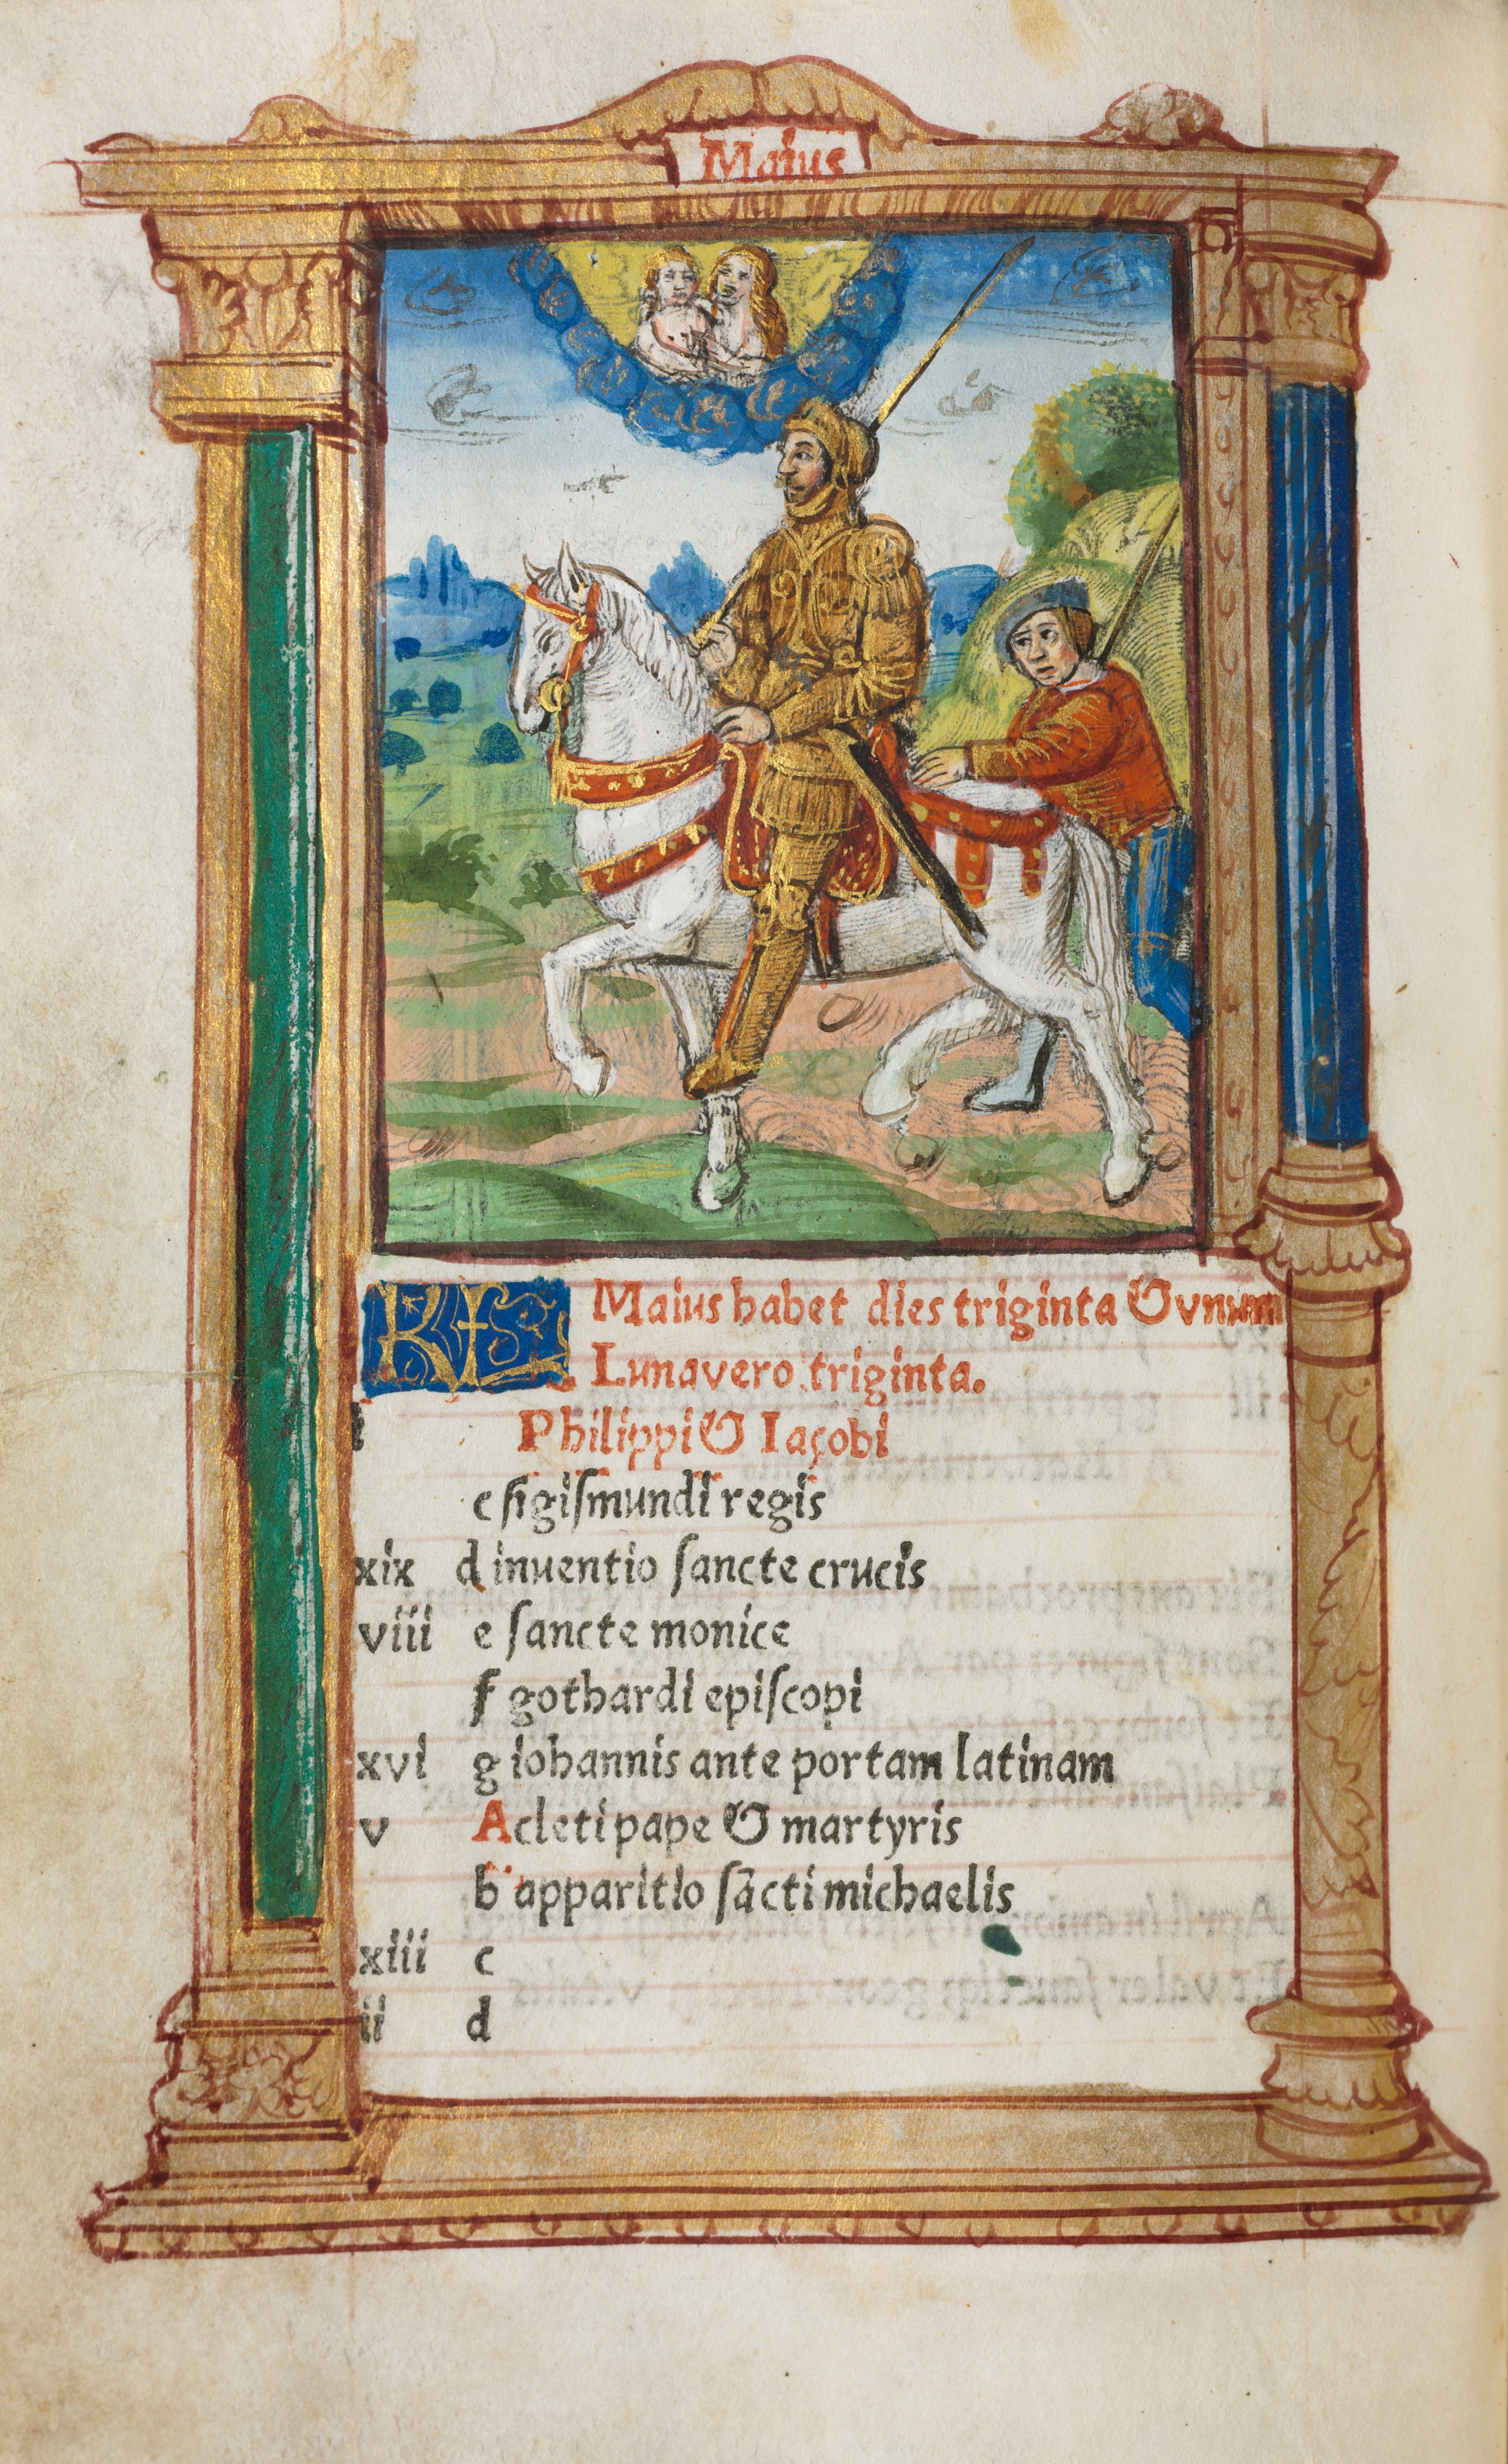 Maius
KL Maius habet dies triginta & vnum
Luna vero triginta.
i Philippi & Iacobi
c sigismundi regis
xix d inuentio sancte crucis
viii e sancte monice
f gothardi episcopi
xvi g iohannis ante portam latinam
v A cleti pape & martyris
b apparitio sācti michaelis
xiii c
ii d